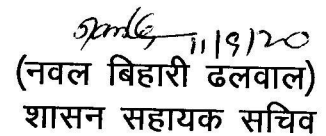 11/9/20
(नवल बिहारी ढलवाल)
शासन सहायक सचिव